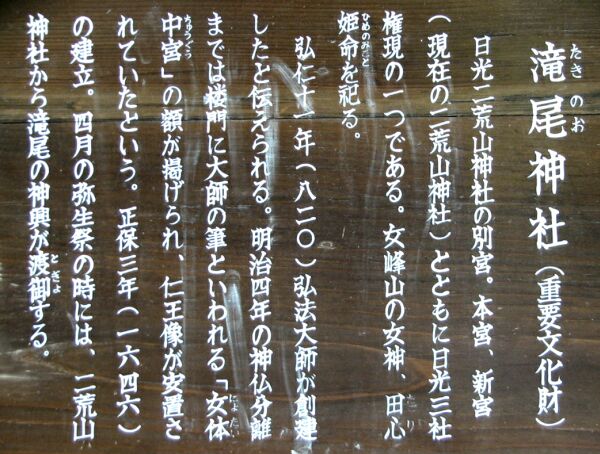 滝尾神社（重要文化財）
日光二荒山神社の別宮。本宮、新宮
（現在の二荒山神社）とともに日光三社
権現の一つである。女峰山の女神、田心
姫命を祀る。
弘仁十一年（八二〇）弘法大師が創建
したと伝えられる。明治四年の神仏分離
までは楼門に大師の筆といわれる「女体
中宮」の額が掲げられ、仁王像が安置さ
れていたという。正保三年（一六四六）
の建立。四月の弥生祭の時には、二荒山
神社から滝尾の神輿が渡御する。